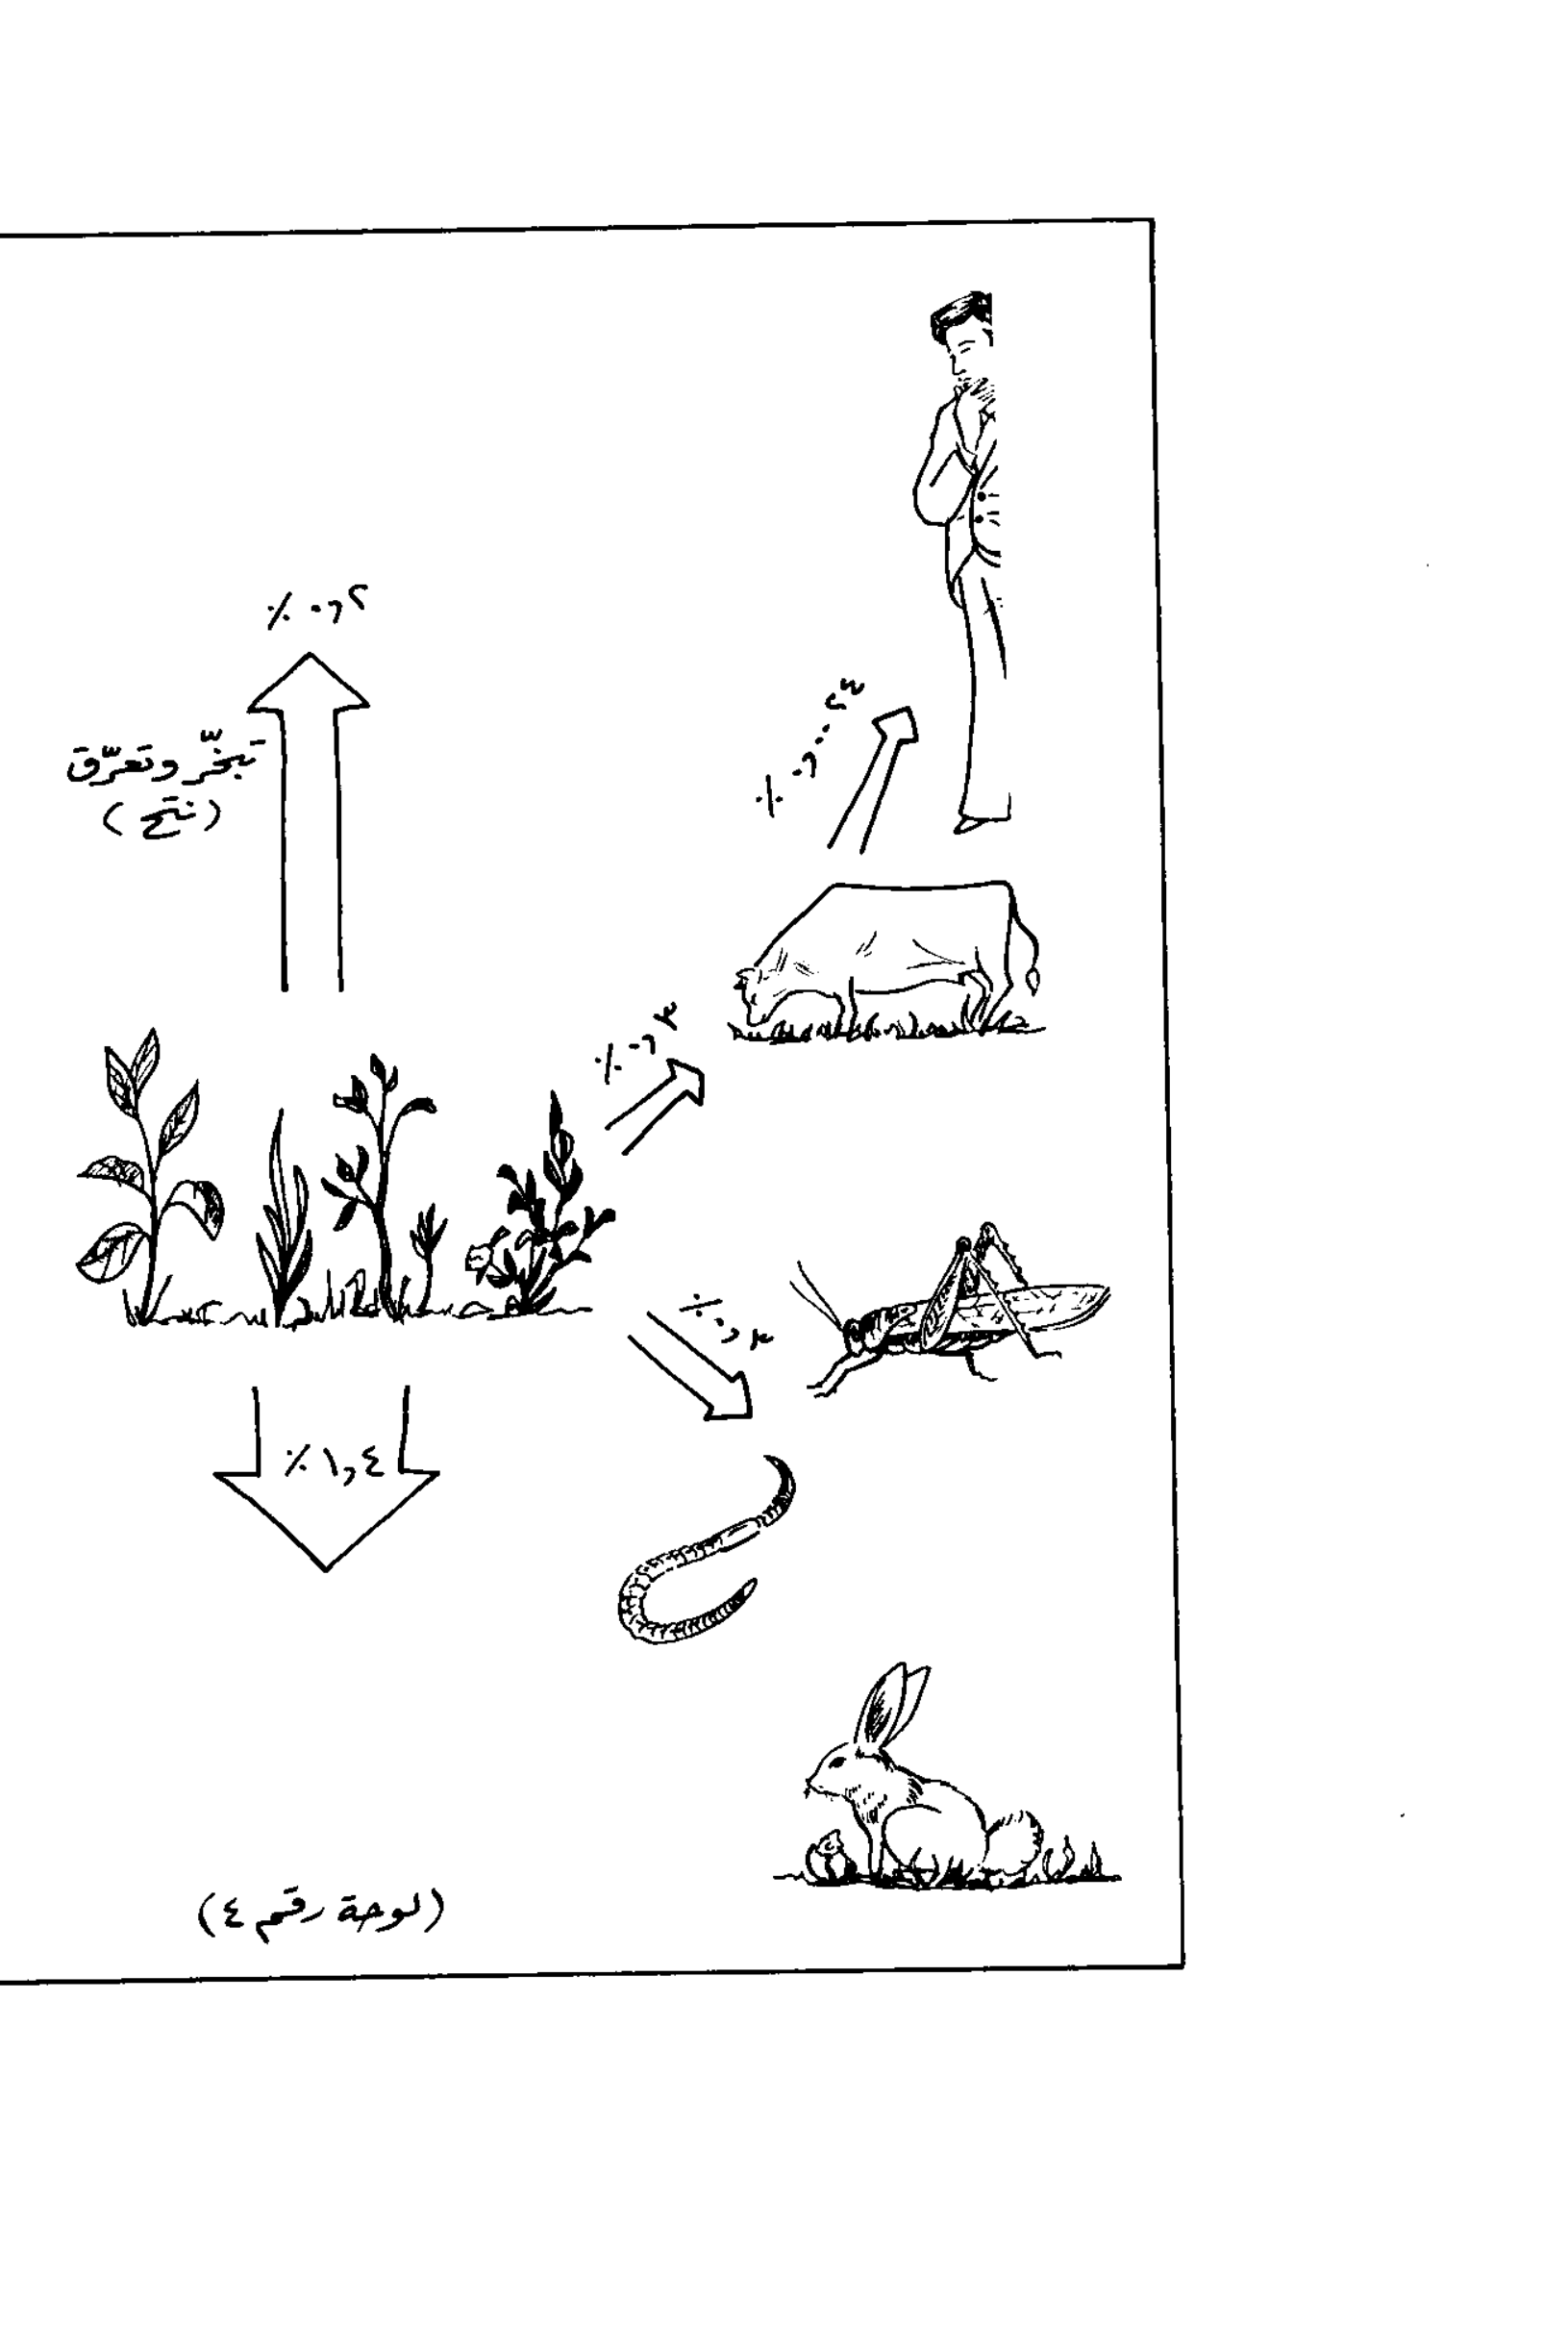 ٠,٢ ٪
تبخّر وتعرّق
(نتح)
٠,٣ ٪
٠,٣ ٪
١,٤ ٪
(لوحة رقم ٤)